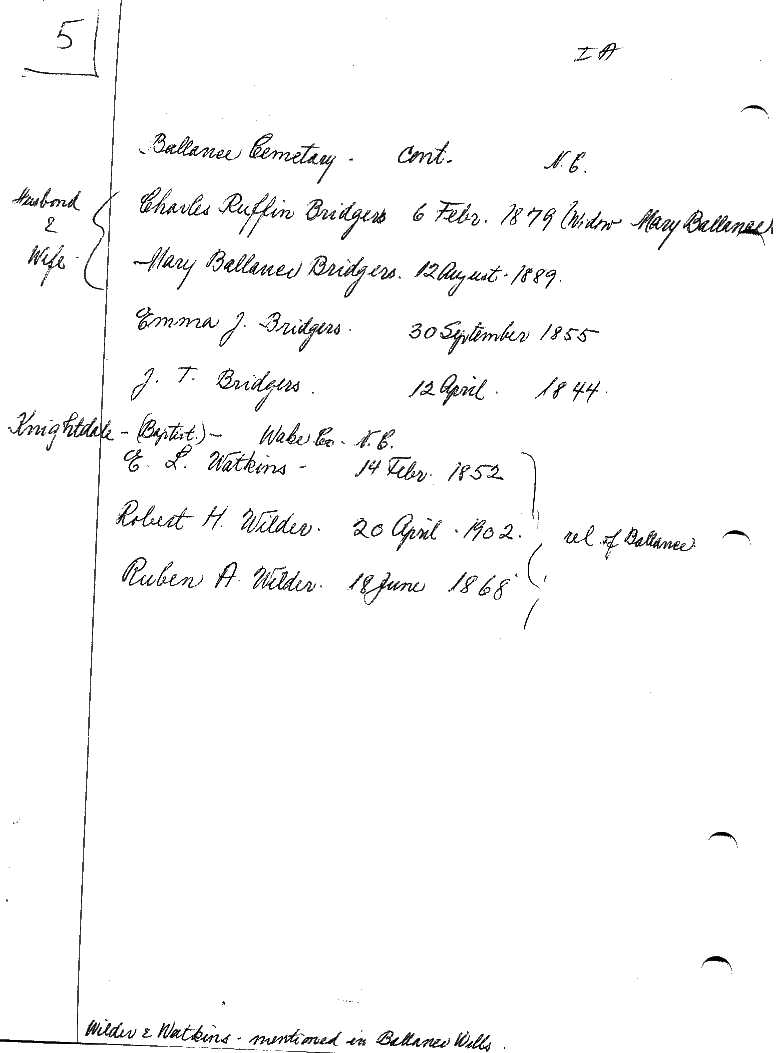 5
I A
Ballance Cemetary - cont. N.C.
Husbond
&
Wife -
Charles Ruffin Bridgers 6 Febr. 1879 (Widow Mary Ballance)
Mary Ballance Bridgers. 12 August - 1889.
Emma J. Bridgers. 30 September 1855
J. T. Bridgers. 12 April. 1844.
Knightdale - (Baptist.) - Wake Co - N.C.
E. L. Watkins - 14 Febr. 1852
Robert H. Wilder. 20 April - 1902.
rel of Ballance
Ruben A. Wilder. 18 June 1868
Wilder & Watkins - mentioned in Ballance Wills.